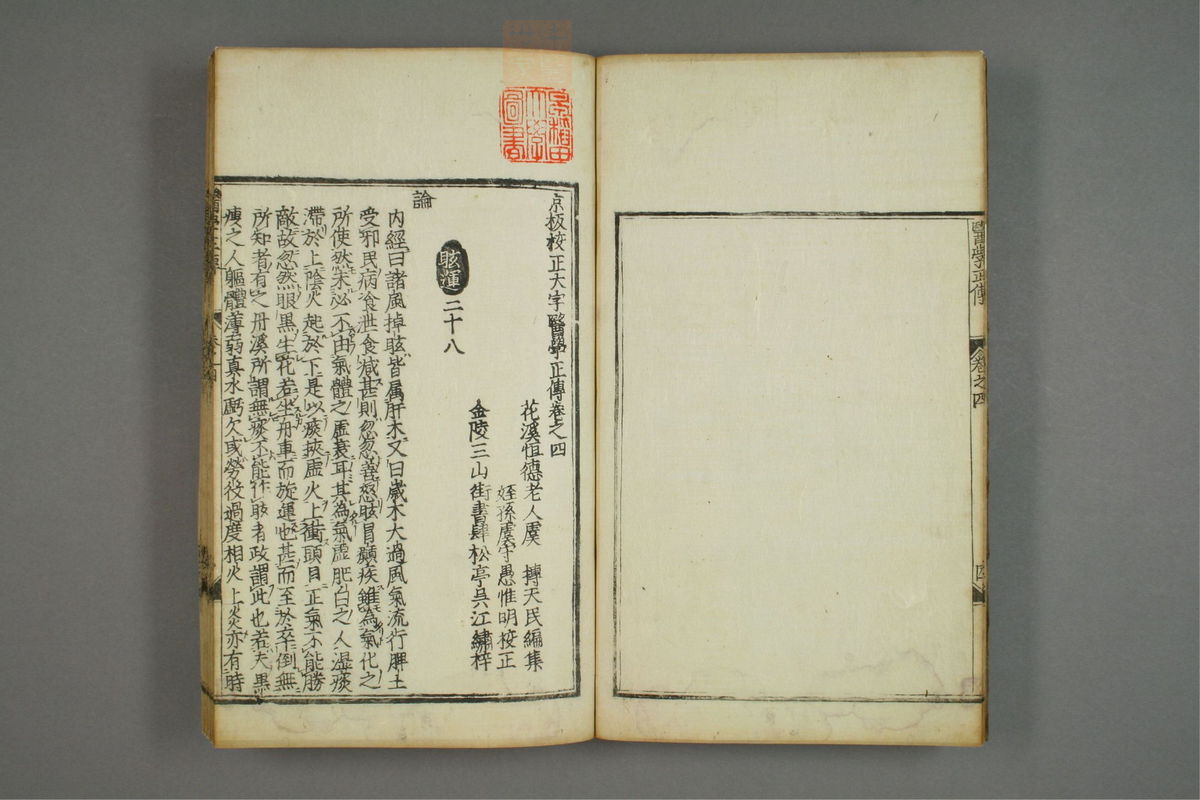 醫學正傳
卷之四
四
京板校正大字醫學正傳卷之四
花溪恒德老人虞　摶天民編集
姪孫虞守愚惟明校正
金陵三山街書肆松亭吳江繡梓
眩運 二十八
論
内經曰諸風掉眩皆属肝木又曰歲木大過風氣流行脾土
受邪民病食泄食减甚則忽忽善怒眩冒巔疾雖為氣化之
所使然未必不由氣體之虛衰耳其為氣虛肥白之人濕痰
滯於上陰火起於下是以痰挾虛火上衝頭目正氣不能勝
敵故忽然眼黒生花若坐舟車而旋運也甚而至於卒倒無
所知者有之丹溪所謂無痰不能作眩者政謂此也若夫黒
瘦之人軀體薄弱真水虧欠或勞役過度相火上炎亦有時